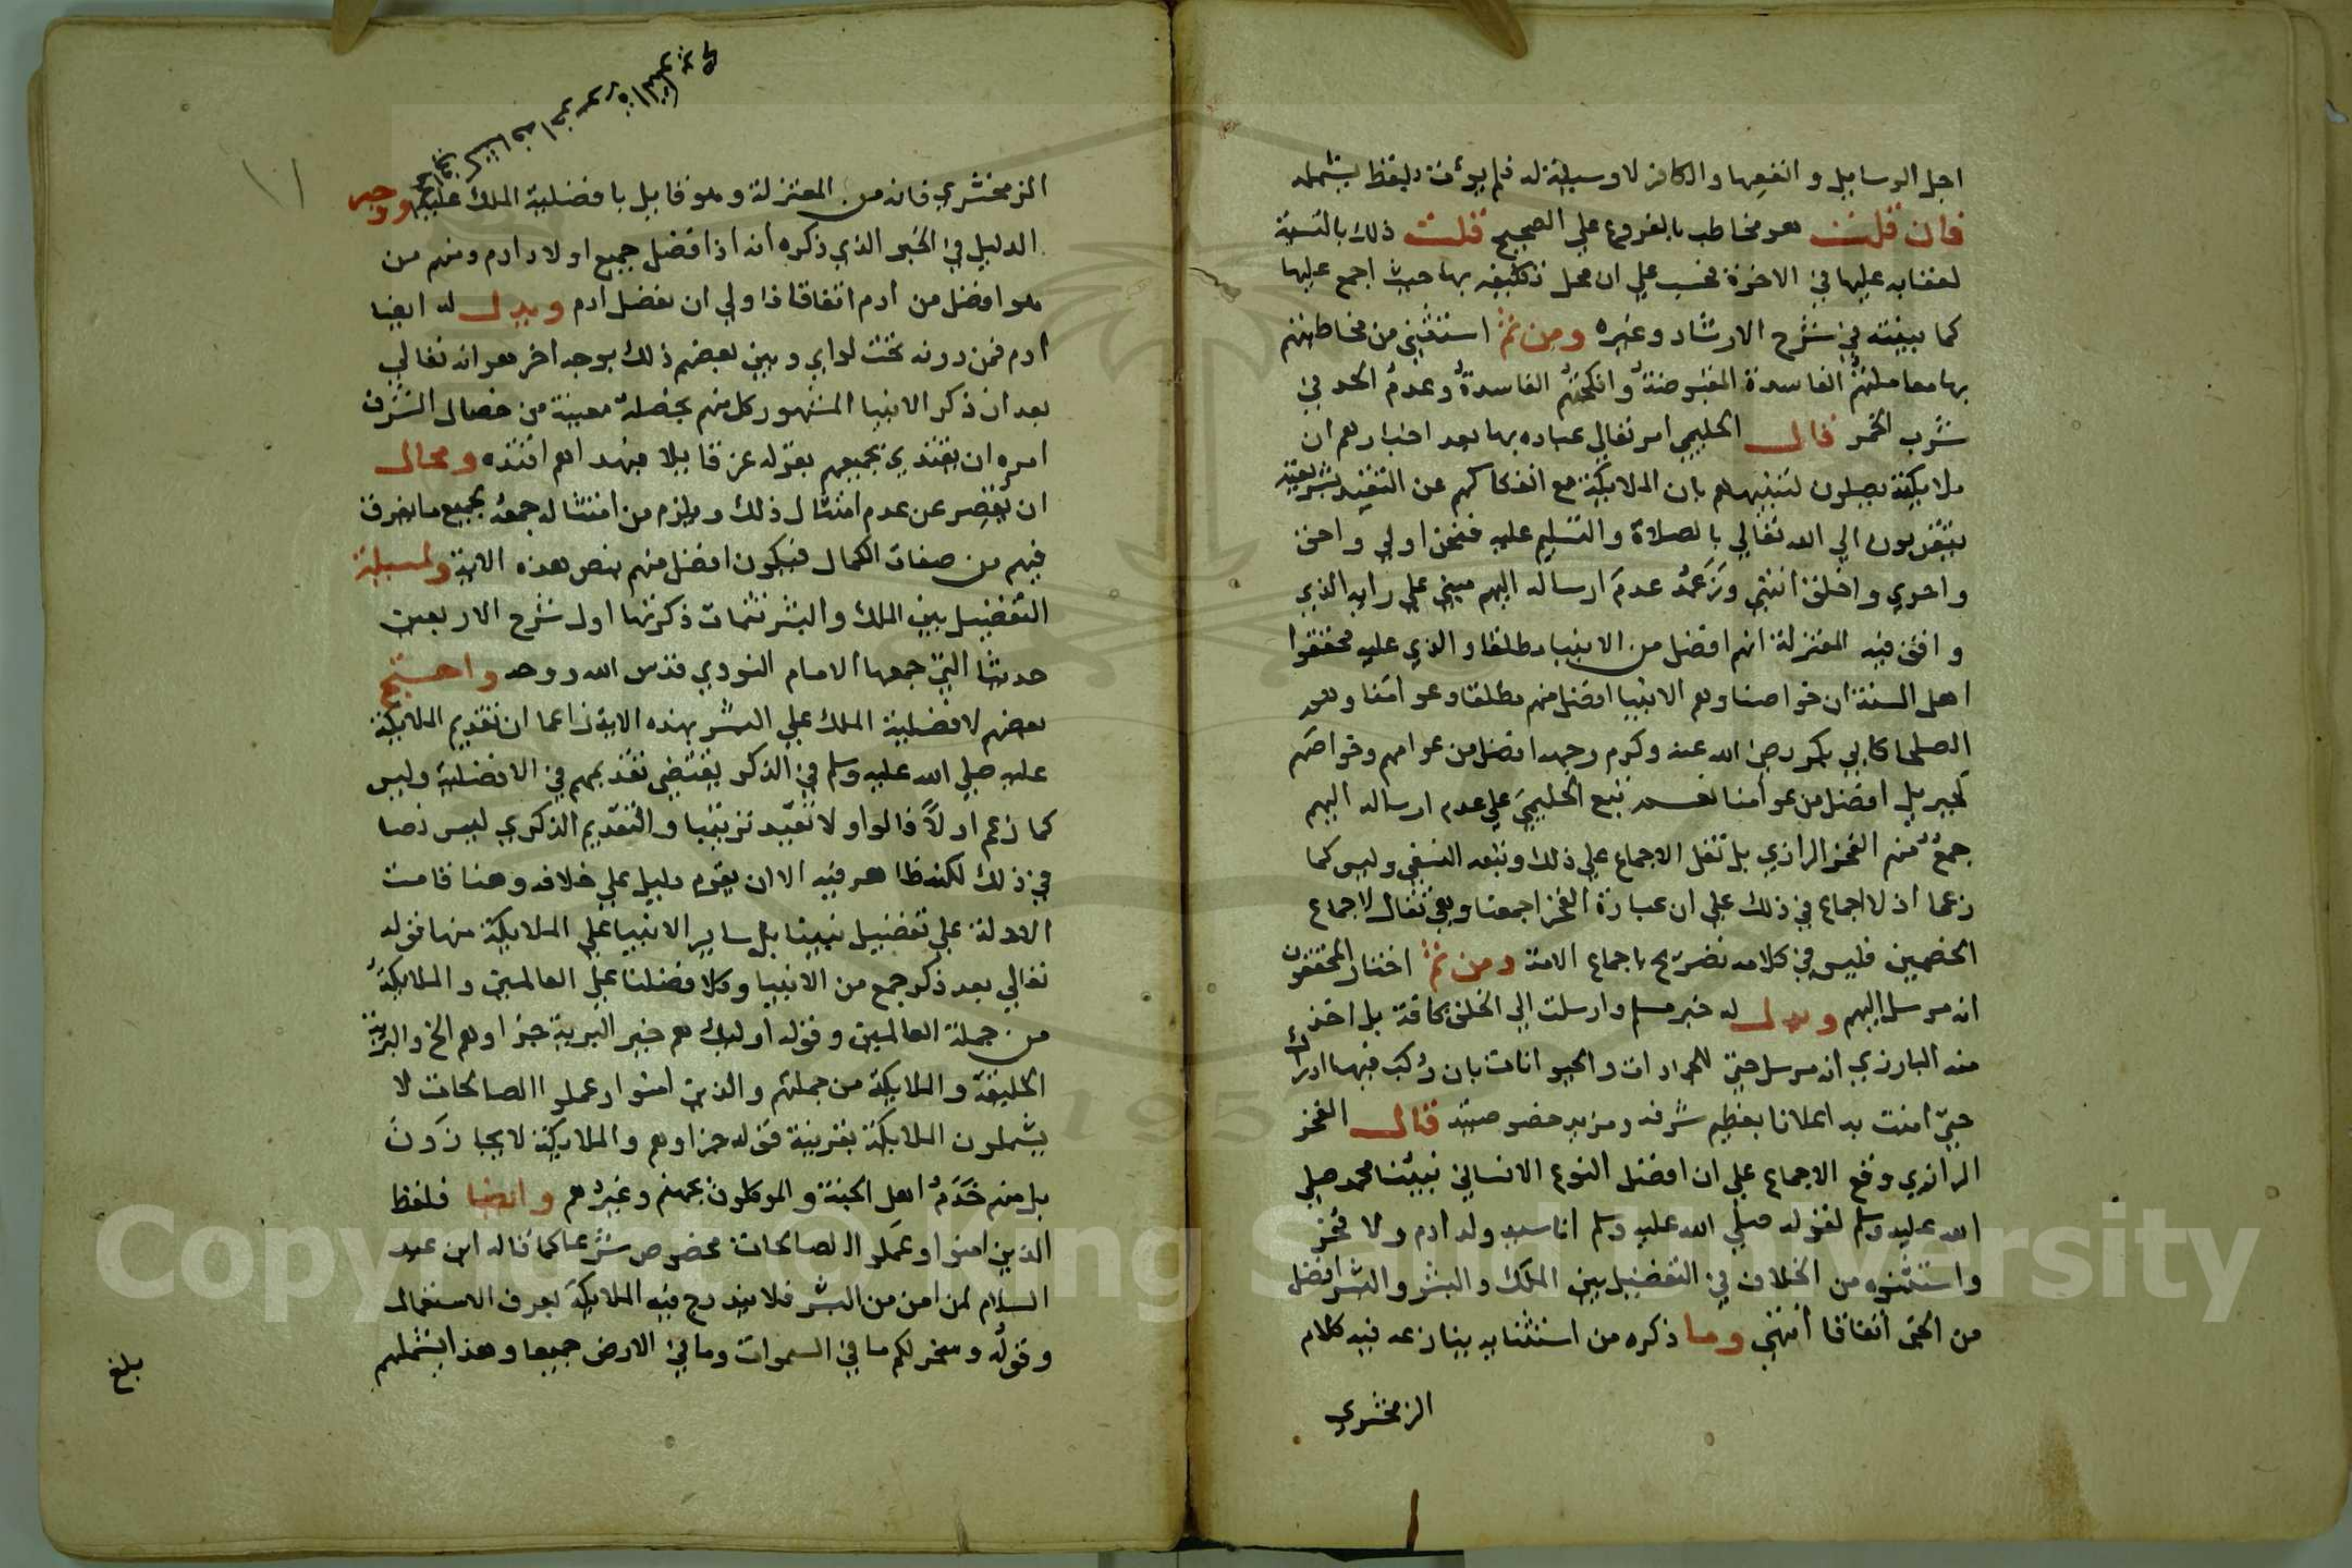 اجل الوسايل وانفعها والكافر لا وسيلة له فلم يؤت بلفظ يشمله
فان قلت هو مخاطب بالفروع علي الصحيح قلت ذلك بالنسبة
لعقابه عليها في الاخرة فحسب علي ان محل تكليفه بها حيث اجمع عليها
كما بينته في شرح الارشاد وغيره ومن ثم استثني من مخاطبتهم
بها معاملتهم الفاسدة المقبوضة وانكحتهم الفاسدة وعدم الحد في
شرب الخمر قال الحليمي امر تعالي عباده بها بعد اخبارهم ان
ملايكته يصلون لتنبيههم بان الملايكة مع انفكاكهم عن التقيد بشريعته
يتقربون الي الله تعالي بالصلاة والتسليم عليه فنحن اولي واحق
واحري واخلق انتهي وزعمه عدم ارساله اليهم مبني علي رايه الذي
وافق فيه المعتزلة انهم افضل من الانبيا مطلقا والذي عليه محققوا
اهل السنة ان خواصنا وهم الانبيا افضل منهم مطلقا وعوامنا وهم
الصلحا كابي بكر رضي الله عنه وكرم وجهه افضل من عوامهم وخواصهم
كجبريل افضل من عوامنا نعم تبع الحليمي علي عدم ارساله اليهم
جمع منهم الفخر الرازي بل نقل الاجماع علي ذلك وتبعه النسفي وليس كما
زعما اذ لا اجماع في ذلك علي ان عبارة الفخر اجمعنا وهي تقال لاجماع
الخصمين فليس في كلامه تصريح باجماع الامة ومن ثم اختار المحققون
انه مرسل اليهم ويدل له خبر مسلم وارسلت الي الخلق كافة بل اخذ
منه البارزي انه مرسل حتي للجمادات والحيوانات بان ركب فيها ادراك
حتي امنت به اعلانا بعظيم شرفه ومزيد خصوصيته قال الفخر
الرازي وقع الاجماع علي ان افضل النوع الانساني نبينا محمد صلي
الله عليه وسلم لقوله صلي الله عليه وسلم انا سيد ولد ادم ولا فخر
واستثنوه من الخلاف في التفضيل بين الملك والبشر والبشر افضل
من الجن اتفاقا انتهي وما ذكره من استثنايه ينازعه فيه كلام
الزمخشري
١١
الزمخشري فانه من المعتزلة وهو قايل بافضلية الملك عليهم ووجه
الدليل في الخبر الذي ذكره انه اذا فضل جميع اولاد ادم ومنهم من
هو افضل من ادم اتفاقا فاولي ان يفضل ادم ويدل له ايضا
ادم فمن دونه تحت لواي وبين بعضهم ذلك بوجه اخر هو انه تعالي
بعد ان ذكر الانبيا المشهور كل منهم بخصلة معينة من خصال الشرف
امره ان يقتدي بجميعهم بقوله عز قايلا فبهداهم اقتده ومحال
ان يقصر عن عدم امتثال ذلك ويلزم من امتثاله جمعه بجميع ما تفرق
فيهم من صفات الكمال فيكون افضل منهم بنص هذه الاية ولمسيلة
التفضيل بين الملك والبشر تتمات ذكرتها اول شرح الاربعين
حديثا التي جمعها الامام النووي قدس الله روحه واحتج
بعضهم لافضلية الملك علي البشر بهذه الاية زاعما ان تقديم الملايكة
عليه صلي الله عليه وسلم في الذكر يقتضي تقديمهم في الافضلية وليس
كما زعم اولا فالواو لا تفيد ترتيبا والتقديم الذكري ليس نصا
في ذلك لكنه ظاهر فيه الا ان يقوم دليل علي خلافه وهنا قامت
الادلة علي تفضيل نبينا بل ساير الانبيا علي الملايكة منها قوله
تعالي بعد ذكر جمع من الانبيا وكلا فضلنا علي العالمين والملايكة
من جملة العالمين وقوله اوليك هم خير البرية جزاوهم الخ والبرية
الخليقة والملايكة من جملتهم والذين امنوا وعملوا الصالحات لا
يشملون الملايكة بقرينة قوله جزاوهم والملايكة لا يجازون
بل منهم خدم اهل الجنة والموكلون بجهنم وغيرهم وايضا فلفظ
الذين امنوا وعملوا الصالحات مخصوص شرعا كما قاله ابن عبد
السلام لمن امن من البشر فلا يندرج فيه الملايكة بعرف الاستعمال
وقوله وسخر لكم ما في السموات وما في الارض جميعا وهذا يشملهم
بلغ
Copyright © King Saud University
195